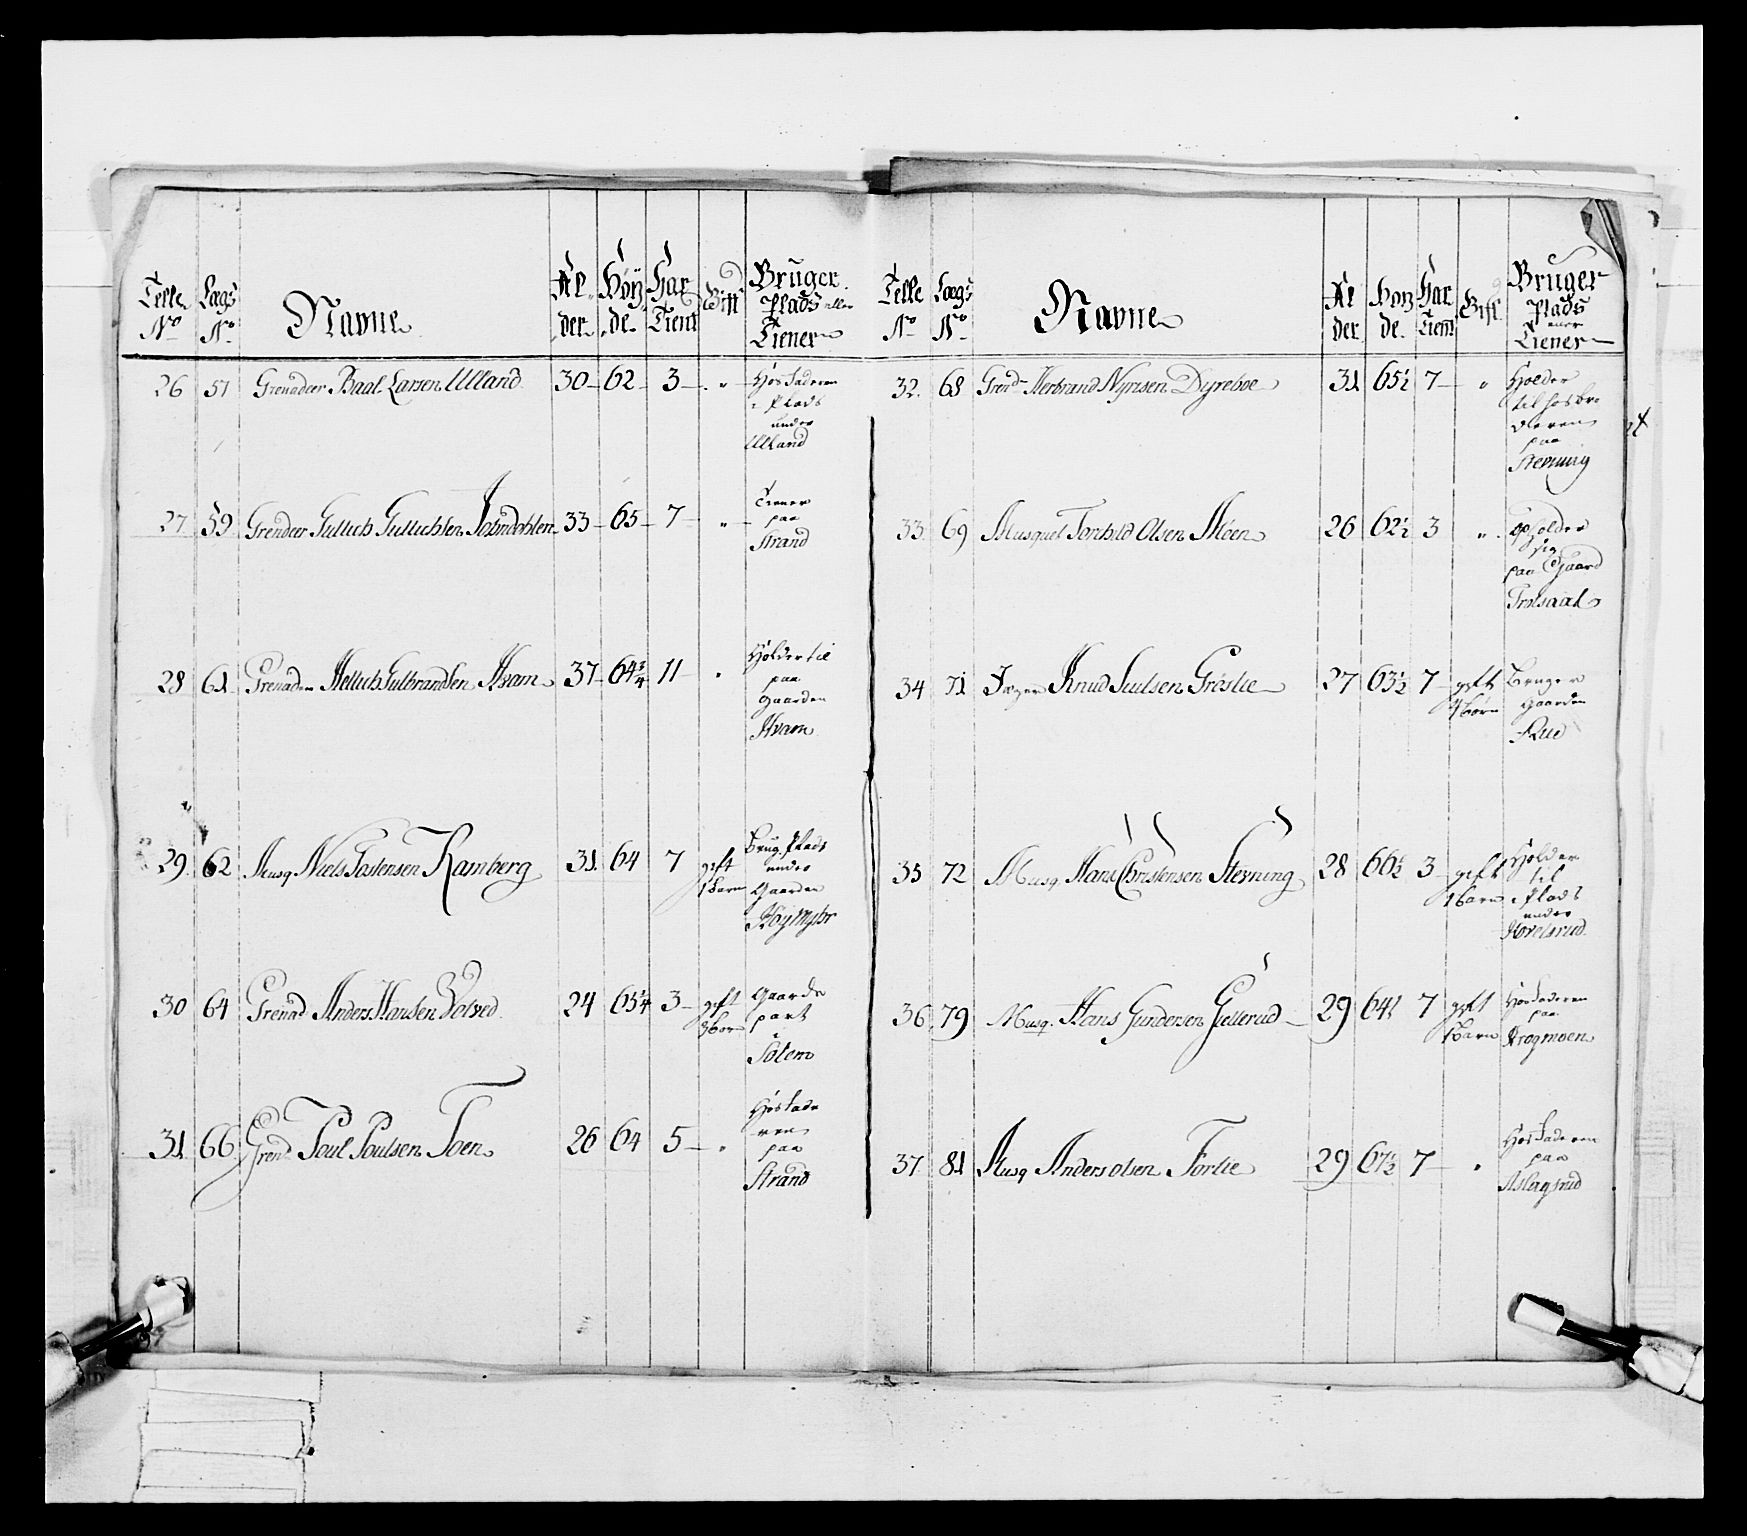 Telle No | Lægs No | Navne | Al der | Høy de | Har Tient | Gift | Bruger Plads eller Tiener
26 | 57 | Grenadeer Baal Larsen Ulland | 30 | 62 | 3 | " | Hos Faderen
i Plads
under
Ulland
27 | 59 | Grendeer Gullich Gullichsen | 33 | 65 | 7 | " | Tiener
paa
Strand
28 | 61 | Grenadeer Hellich Gulbrandsen Hvam | 37 | 64 3/4 | 11 | " | Holder til
paa
Gaarden
Hvam
29 | 62 | Musq Niels Tostensen Ramberg | 31 | 64 | 7 | gift
1 Barn | Brug. Plads
under
Gaarden
30 | 64 | Grenad Anders Hansen | 24 | 65 1/4 | 3 | gift | Gaarde
part
i
Solem
31 | 66 | Grend Poul Poulsen Toen | 26 | 64 | 5 | " | Hos Fade
ren
paa
Strand
Telle No | Lægs No | Navne | Al der | Høy de | Har Tient | Gift | Bruger Plads eller Tiener
32 | 68 | Grend Herbrand Dyreboe | 31 | 65 1/2 | 7 | " | Holder
til hos bro
deren
paa
Stevning
33 | 69 | Musquet Torkild Olsen Moen | 26 | 62 1/2 | 3 | " | opholder
sig
paa Gaard
34 | 71 | Jæger Knud Grøslie | 27 | 63 1/2 | 7 | gift
børn | Bruger
Gaarden
Rue
35 | 72 | Musq. Hans Christensen Stevning | 28 | 66 1/2 | 3 | gift
1 Barn | Holder
til
i Plads
under
Hovelsrud
36 | 79 | Musq. Hans Gundersen Gullerud | 29 | 64 1/2 | 7 | gift
1 Barn | Hos Faderen
paa
37 | 81 | Musq Anders Olsen Forlie | 29 | 67 1/2 | 7 | " | Hos Faderen
paa
Aslagsrud